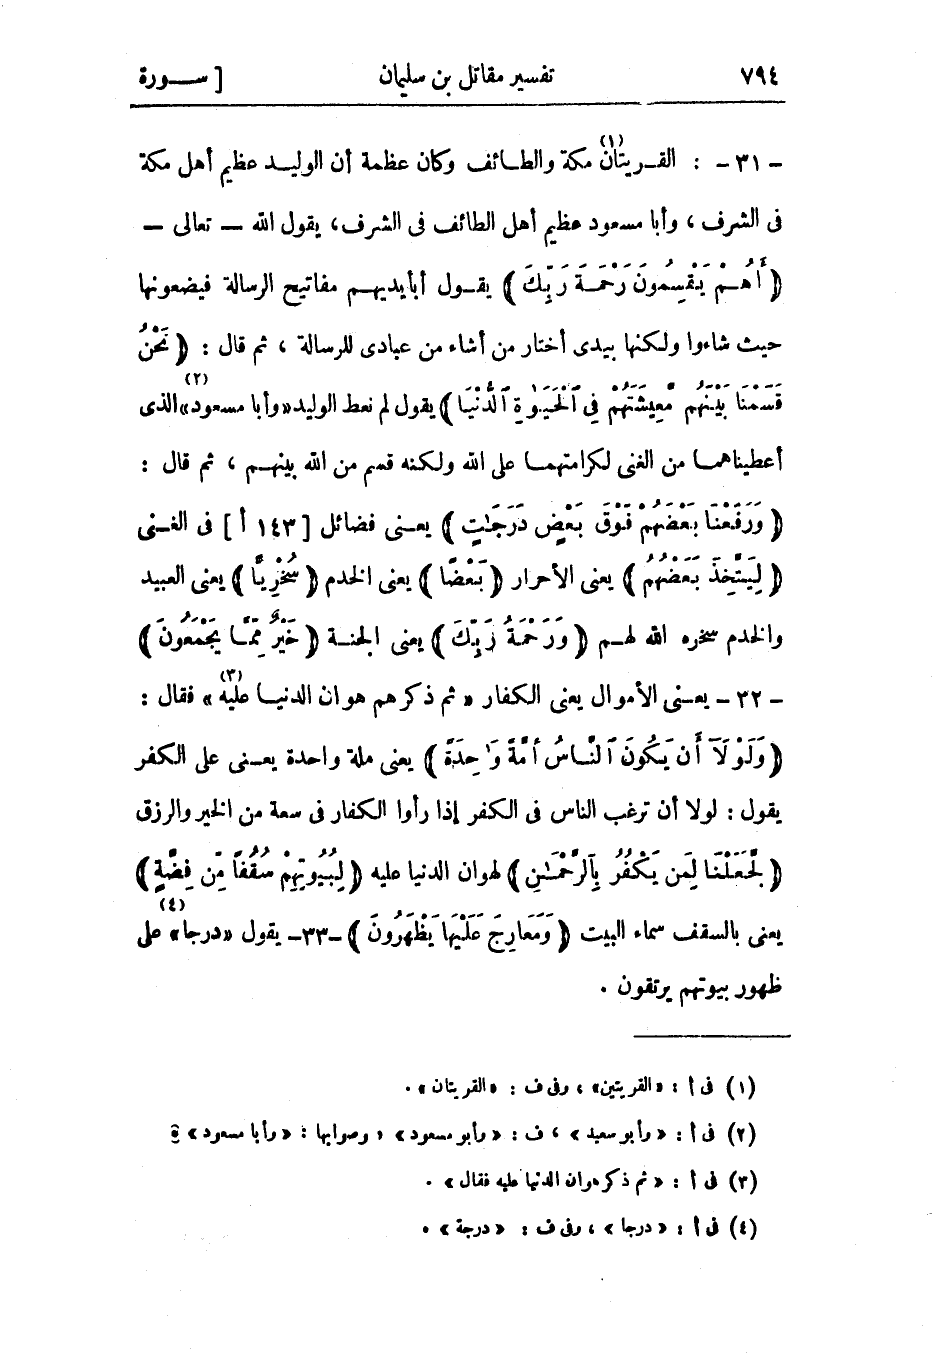 ٧٩٤ تفسير مقاتل بن سليمان [ ســورة
– ٣١ – : القريتان(١) مكة والطائف وكان عظمة أن الوليد عظيم أهل مكة
فى الشرف ، وأبا مسعود عظيم أهل الطائف فى الشرف، يقول الله – تعالى –
﴿ أَهُمْ يَقْسِمُونَ رَحْمَةَ رَبِّكَ ﴾ يقول أبأيديهم مفاتيح الرسالة فيضعونها
حيث شاءوا ولكنها بيدى أختار من أشاء من عبادى للرسالة ، ثم قال : ﴿ نَحْنُ
قَسَمْنَا بَيْنَهُم مَّعِيشَتَهُمْ فِي ٱلْحَيَوٰةِ ٱلدُّنْيَا ﴾ يقول لم نعط الوليد «وأبا مسعود»(٢) الذى
أعطيناهما من الغنى لكرامتهما على الله ولكنه قسم من الله بينهم ، ثم قال :
﴿ وَرَفَعْنَا بَعْضَهُمْ فَوْقَ بَعْضٍ دَرَجَٰتٍ ﴾ يعنى فضائل [ ١٤٣ أ ] فى الغنى
﴿ لِيَتَّخِذَ بَعْضُهُم ﴾ يعنى الأحرار ﴿ بَعْضًا ﴾ يعنى الخدم ﴿ سُخْرِيًّا ﴾ يعنى العبيد
والخدم سخره الله لهم ﴿ وَرَحْمَةُ رَبِّكَ ﴾ يعنى الجنة ﴿ خَيْرٌ مِّمَّا يَجْمَعُونَ ﴾
– ٣٢ – يعنى الأموال يعنى الكفار « ثم ذكرهم هوان الدنيا عليه »(٣) فقال :
﴿ وَلَوْلَآ أَن يَكُونَ ٱلنَّاسُ أُمَّةً وَٰحِدَةً ﴾ يعنى ملة واحدة يعنى على الكفر
يقول : لولا أن ترغب الناس فى الكفر إذا رأوا الكفار فى سعة من الخير والرزق
﴿ لَّجَعَلْنَا لِمَن يَكْفُرُ بِٱلرَّحْمَٰنِ ﴾ لهوان الدنيا عليه ﴿ لِبُيُوتِهِمْ سُقُفًا مِّن فِضَّةٍ ﴾
يعنى بالسقف سماء البيت ﴿ وَمَعَارِجَ عَلَيْهَا يَظْهَرُونَ ﴾ –٣٣– يقول «درجا»(٤) على
ظهور بيوتهم يرتقون .
(١) فى أ : «القريتين» ، وفى ف : «القريتان» .
(٢) فى أ : « وأبو سعيد » ، ف : « وأبو مسعود » ، وصوابها : « وأبا مسعود »
(٣) فى أ : « ثم ذكر هوان الدنيا عليه فقال » .
(٤) فى أ : « درجا » ، وفى ف : « درجة » .